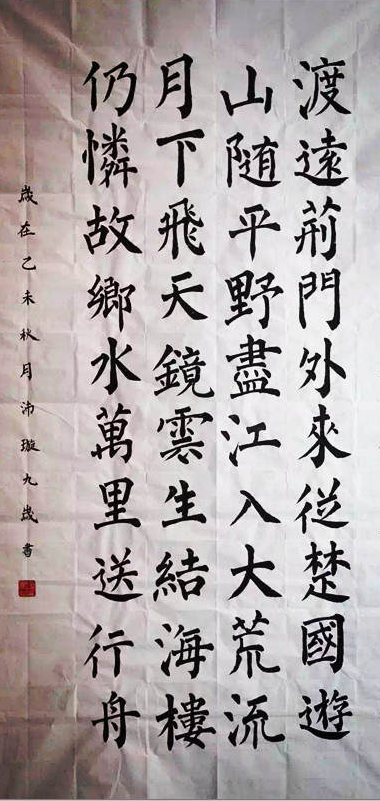 渡遠荊門外來從楚國遊
山随平野盡江入大荒流
月下飛天鏡雲生結海樓
仍憐故鄉水萬里送行舟
歲在乙未秋月沛璇九歲書